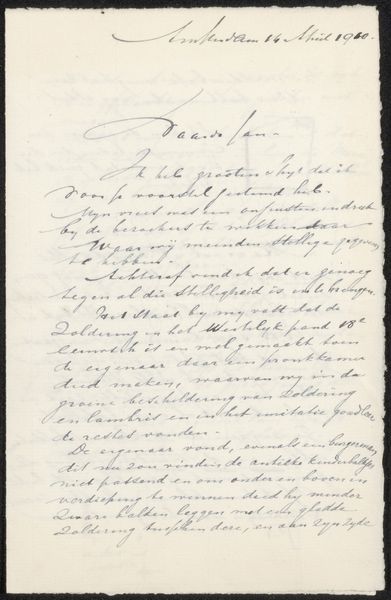 Amsterdam 14 April 1910.
Waarde Jan.
Ik heb grooten spijt dat ik
voor je voorstel gestemd heb.
Mijn vrees was een onjuisten indruk
by de bezoekers te wekken daar
Waar wy meenden stellige gegevens
te hebben.
Achteraf vind ik dat er genoeg
tegen al die stelligheid is in te brengen.
Het staat by my vast dat de
Zoldering in het Westelyk pand 18e
eeuwsch is en wel gemaakt toen
de eigenaar daar een pronkkamer
deed maken, waarvan wy in de
groene beschildering van Zoldering
en lambris en in het imitatie goudleer
de restes vonden.
De eigenaar vond, evenals een burgerman
dit nu zou vinden de antieke kinderbalkjes
niet passend en om onder en boven in
verdieping te winnen deed hy minder
Zware balken leggen met een gladde
Zoldering en aan zyn zyde